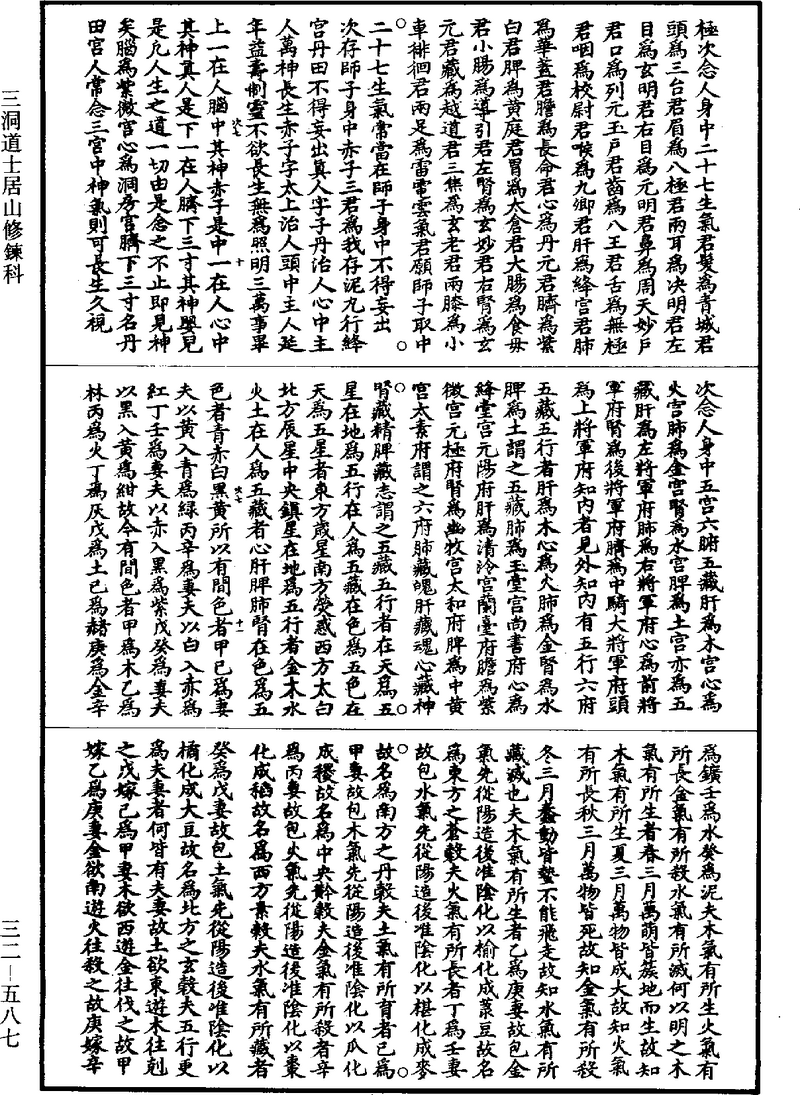 極次念人身中二十七生氣君髮爲青城君
頭爲三台君眉爲八極君兩耳爲決明君左
目爲玄明君右目爲元明君鼻爲周天妙戶
君口爲列元玉戶君齒爲八王君舌爲無極
君咽爲校尉君喉爲九卿君肝爲絳宮君肺
爲華蓋君膽爲長命君心爲丹元君臍爲紫
白君脾爲黃庭君胃爲太倉君大腸爲食母
君小腸爲導引君左腎爲玄妙君右腎爲玄
元君藏爲越道君三焦爲玄老君兩膝爲小
車徘徊君兩足爲雷電雲氣君願師子取中
二十七生氣常當在師子身中不得妄出
次存師子身中赤子三君爲我存泥九行絳
宮丹田不得妄出真人字子丹治人心中主
人萬神長生赤子字太上治人頭中主人延
年益壽制靈不欲長生無爲照明三萬事畢
上一在人腦中其神赤子是中一在人心中
其神真人是下一在人臍下三寸其神嬰兒
是凡人生之道一切由是念之不止即見神
矣腦爲紫微宮心爲洞房宮臍下三寸名丹
田宮人常念三宮中神氣則可長生久視
次念人身中五宮六腑五藏肝爲木宮心爲
火宮肺爲金宮腎爲水宮脾爲土宮亦爲五
藏肝爲左將軍府肺爲右將軍府心爲前將
軍府腎爲後將軍府臍爲中騎大將軍府頭
爲上將軍府知內者見外知內有五行六府
五藏五行者肝爲木心爲火肺爲金腎爲水
脾爲土謂之五藏肺爲玉堂宮尚書府心爲
絳堂宮元陽府肝爲清泠宮蘭臺府膽爲紫
微宮元極府腎爲幽牧宮太和府脾爲中黃
宮太素府謂之六府肺藏魄肝藏魂心藏神
腎藏精脾藏志謂之五藏五行者在天爲五
星在地爲五行在人爲五藏在色爲五色在
天爲五星者東方歲星南方熒惑西方太白
北方辰星中央鎮星在地爲五行者金木水
火土在人爲五藏者心肝脾肺腎在色爲五
色者青赤白黑黃所以有間色者甲己爲妻
夫以黃入青爲綠丙辛爲妻夫以白入赤爲
紅丁壬爲妻夫以赤入黑爲紫戊癸爲妻夫
以黑入黃爲紺故今有間色者甲爲木乙爲
林丙爲火丁爲灰戊爲土己爲赭庚爲金辛
爲鑛壬爲水癸爲泥夫木氣有所生火氣有
所長金氣有所殺水氣有所滅何以明之木
氣有所生者春三月萬萌皆蔟地而生故知
木氣有所生夏三月萬物皆成大故知火氣
有所長秋三月萬物皆死故知金氣有所殺
冬三月蠢動皆蟄不能飛走故知水氣有所
藏滅也夫木氣有所生者乙爲庚妻故包金
氣先從陽造後准陰化以榆化成菉豆故名
爲東方之蒼穀夫火氣有所長者丁爲壬妻
故包水氣先從陽造後准陰化以椹化成麥
故名爲南方之丹穀夫土氣有所育者己爲
甲妻故包木氣先從陽造後准陰化以瓜化
成稷故名爲中央黅穀夫金氣有所殺者辛
爲丙妻故包火氣先從陽造後准陰化以棗
化成稻故名爲西方素穀夫水氣有所藏者
癸爲戊妻故包土氣先從陽造後准陰化以
橘化成大豆故名爲北方之玄穀夫五行更
爲夫妻者何皆有夫妻故土欲東遊木往剋
之戊嫁己爲甲妻木欲西遊金往伐之故甲
嫁乙爲庚妻金欲南遊火往殺之故庚嫁辛
三洞道士居山修鍊科
三二—五八七